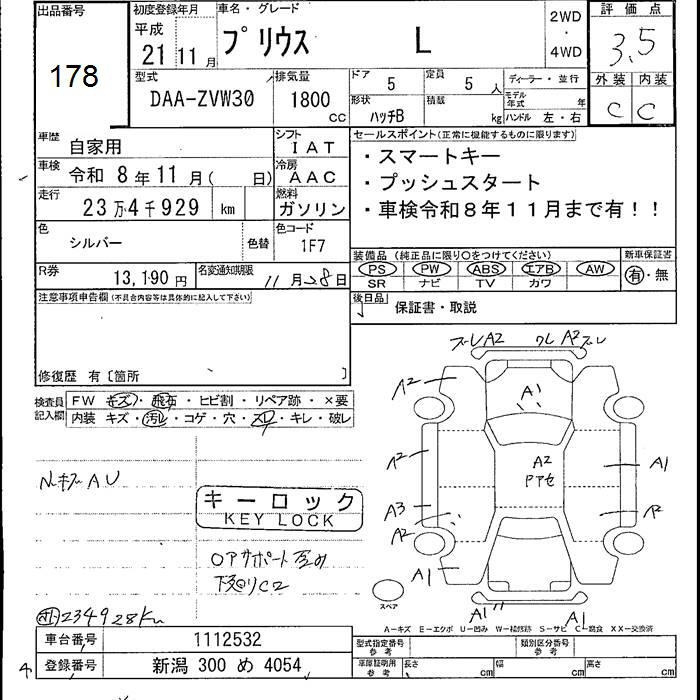 出品番号
178
初度登録年月
平成
21 11 月
車名・グレード
プリウス L
2WD
・
4WD
評価点
3.5
外装 内装
C C
型式
DAA-ZVW30
排気量
1800
CC
ドア
5
定員
5 人
形状
ハッチB
積載
kg
ディーラー・並行
モデル
年式 年
ハンドル 左・右
車歴
自家用
シフト
IAT
車検
令和 8 年 11 月( 日)
冷房
AAC
走行
23 万 4 千 929 km
燃料
ガソリン
色
シルバー
色替
色コード
1F7
R券
13,190 円
名変通知期限
11 月 28 日
セールスポイント(正常に機能するものに限ります)
・スマートキー
・プッシュスタート
・車検令和8年11月まで有!!
装備品 (純正品に限り○をつけてください)
PS PW ABS エアB AW
SR ナビ TV カワ
新車保証書
有・無
後日品
保証書・取説
注意事項申告欄(不具合内容等は具体的に記入して下さい)
修復歴 有〔箇所 〕
検査員
記入欄
FW キズ・飛石・ヒビ割・リペア跡・×要
内装 キズ・汚れ・コゲ・穴・スレ・キレ・破レ
キーロック
KEY LOCK
下廻りC2
234928km
A2
A2
A2
A1
A2
A2
A3
A2
A1
A1
A1
A1
スペア
A-キズ E-エクボ U-凹み W-補修跡 S-サビ C-腐食 XX-交換済
車台番号
1112532
登録番号
新潟 300 め 4054
型式指定番号
参考
類別区分番号
参考
車庫証明用
参考
長さ cm
幅 cm
高さ cm